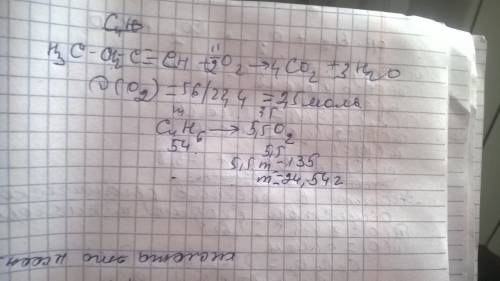 C₄H₆
H₃C-CH₂-C≡CH + 11/2 O₂ → 4CO₂ + 3H₂O
ν(O₂) = 56/22,4 = 2,5 моль
m 2,5
C₄H₆ → 5,5O₂
54 5,5
5,5m = 135
m = 24,54 г